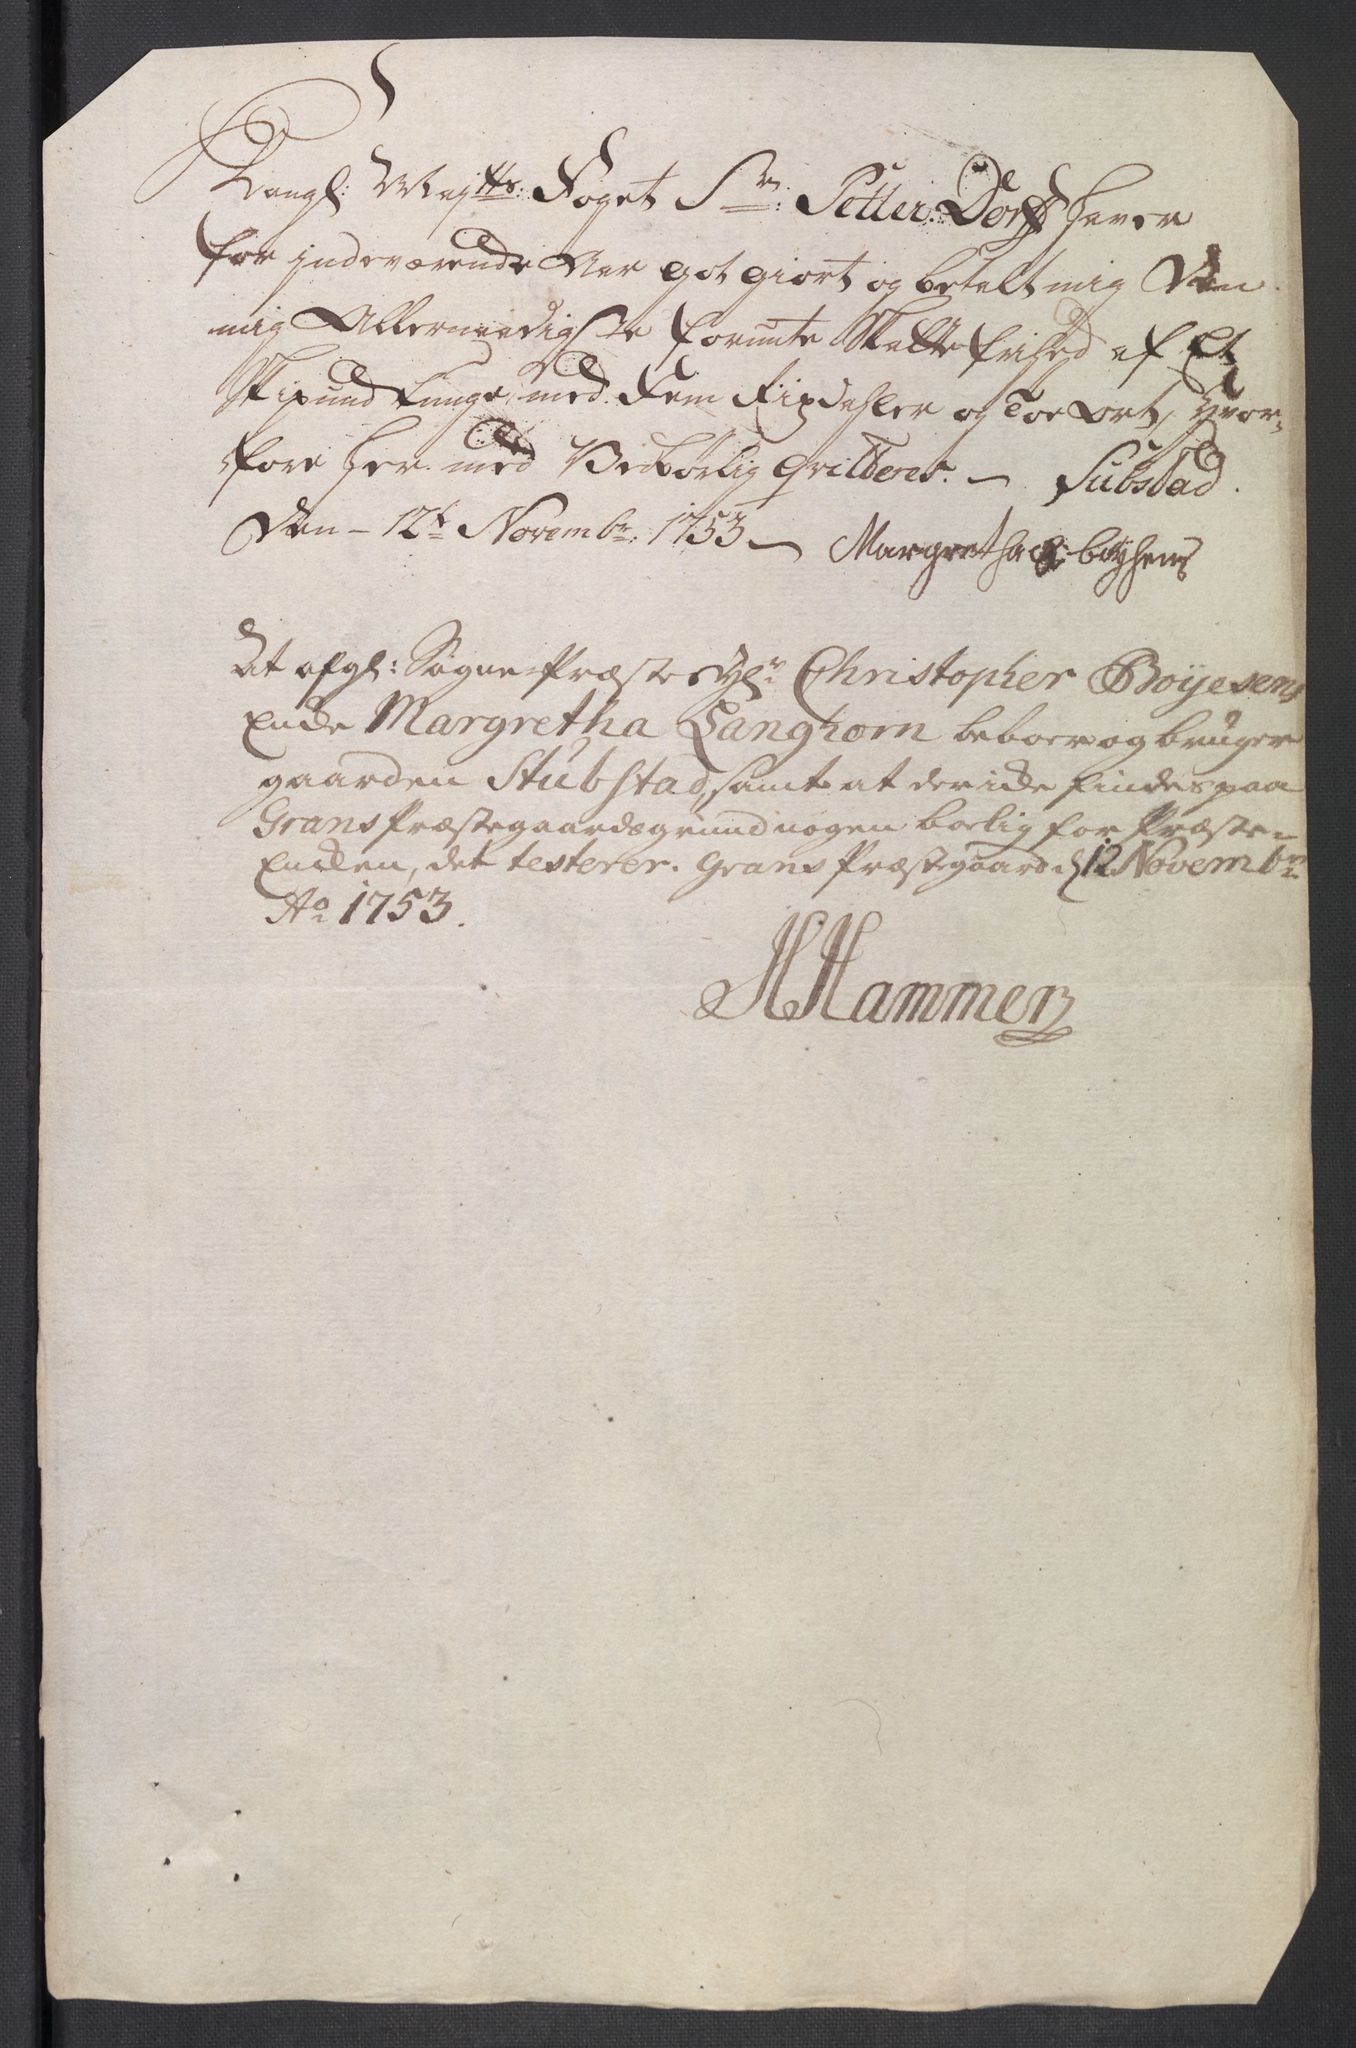 Kongl: Maytts: Foget Sr: Petter Dorff haver
for indeværende Aar got giort og betalt mig Den
mig Allernaadigste forunte Skatte frihed af Et
Skipund tunge, med Fem Rixdahler og Toe Ort, Hvor-
fore her med Bebørlig Qvitteres. – Stubstad
Den – 12te Novembr: 1753 – Margretha Boyhens
At afgl: Sogne-Præstes Hr Christopher Boyesens
Encke Margretha Langhorn beboer og bruger
gaarden Stubstad, samt at der icke findes paa
Grans Præstegaards grund nogen boelig for Præste-
Encken, det testerer. Grans Præstegaard d 12 Novembr
Ao 1753.
HHammer